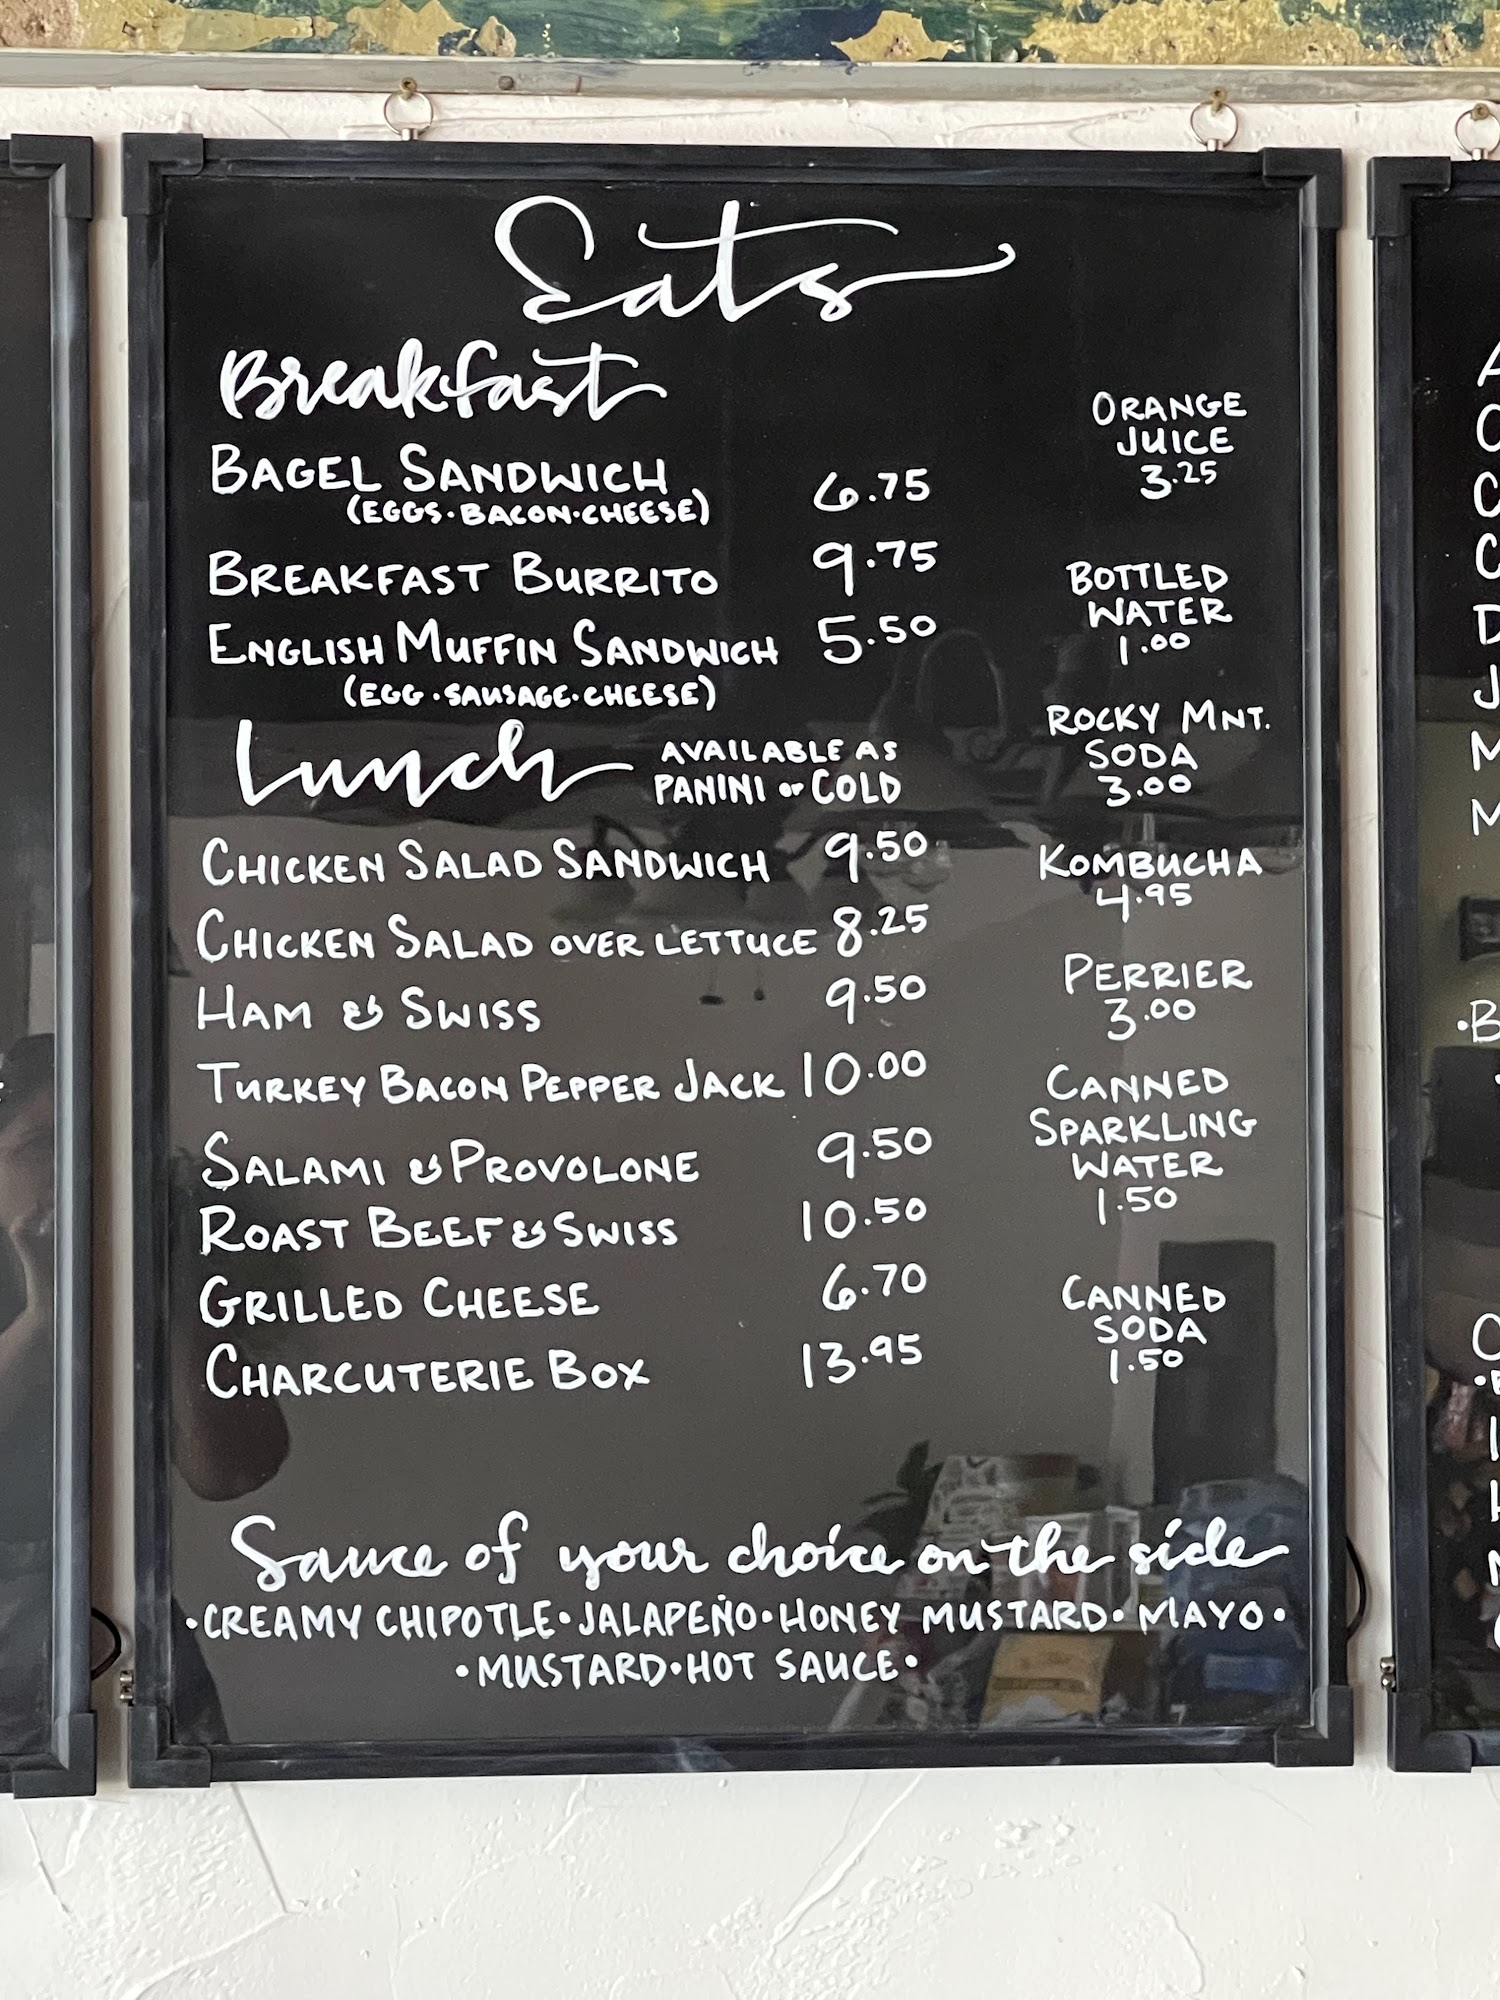 Eats
Breakfast
BAGEL SANDWICH 6.75
(EGGS·BACON·CHEESE)
BREAKFAST BURRITO 9.75
ENGLISH MUFFIN SANDWICH 5.50
(EGG·SAUSAGE·CHEESE)
Lunch AVAILABLE AS
PANINI or COLD
CHICKEN SALAD SANDWICH 9.50
CHICKEN SALAD OVER LETTUCE 8.25
HAM & SWISS 9.50
TURKEY BACON PEPPER JACK 10.00
SALAMI & PROVOLONE 9.50
ROAST BEEF & SWISS 10.50
GRILLED CHEESE 6.70
CHARCUTERIE BOX 13.95
ORANGE
JUICE
3.25
BOTTLED
WATER
1.00
ROCKY MNT.
SODA
3.00
KOMBUCHA
4.95
PERRIER
3.00
CANNED
SPARKLING
WATER
1.50
CANNED
SODA
1.50
Sauce of your choice on the side
·CREAMY CHIPOTLE·JALAPEÑO·HONEY MUSTARD·MAYO·
·MUSTARD·HOT SAUCE·